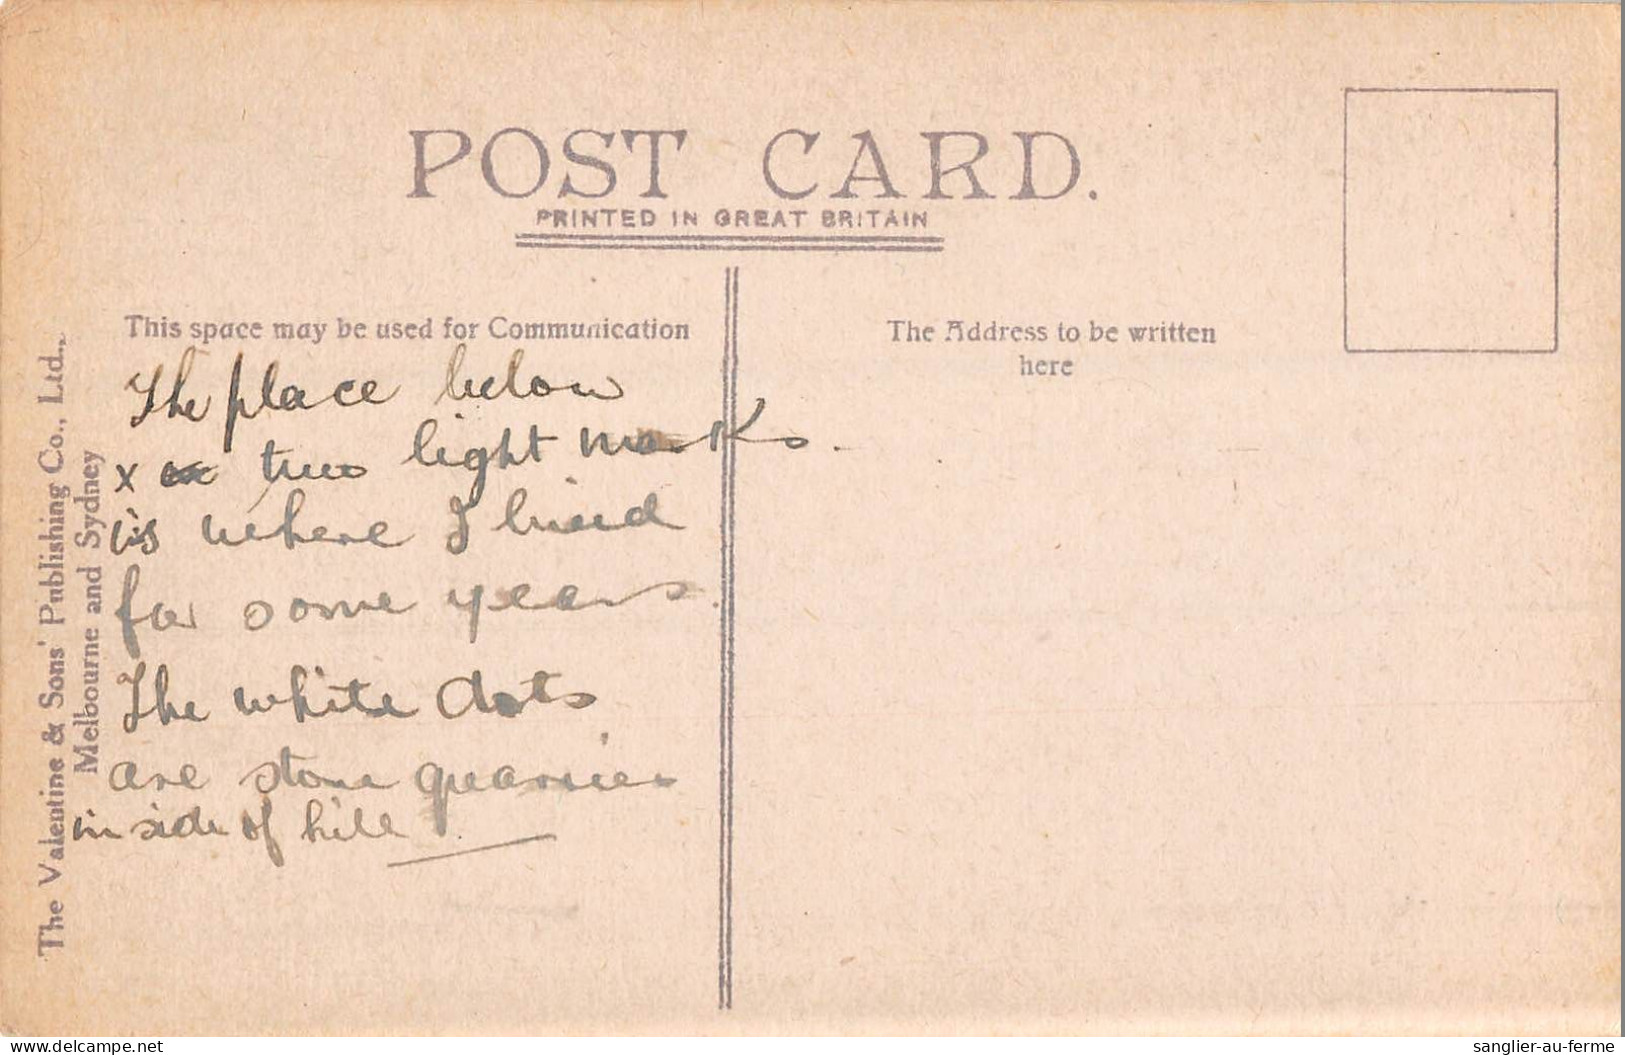 POST CARD.
PRINTED IN GREAT BRITAIN
This space may be used for Communication
The Address to be written
here
The place below
x two light marks.
is where I lived
for some years.
The white dots
are stone quarries
in side of hill
The Valentine & Sons' Publishing Co., Ltd.,
Melbourne and Sydney
www.delcampe.net
sanglier-au-ferme